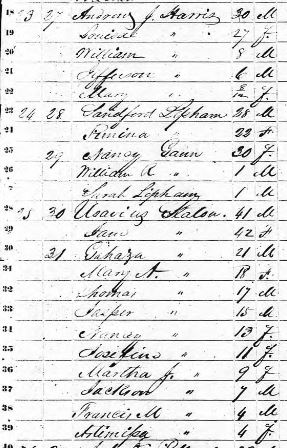 18 23 27 Andrew J. Harris 30 M
19 Louisa " 27 F
20 William " 8 M
21 Jefferson " 6 M
22 Mary " F
23 24 28 Sandford Lipham 28 M
24 " 22 F
25 29 Nancy Gann 20 F
26 William R " 1 M
27 Sarah Lipham 1 M
28 25 30 41 M
29 Jane " 42 F
30 31 " 21 M
31 Mary A. " 18 F
32 Thomas " 17 M
33 Jasper " 15 M
34 Nancy " 13 F
35 " 11 F
36 Martha J. " 9 F
37 Jackson " 7 M
38 Francis M " 4 M
39 " 4 F